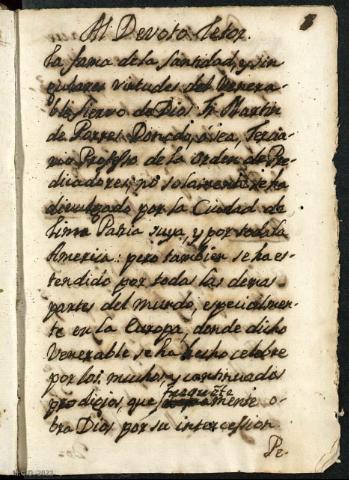 Al Devoto Letor.
La fama de la Santidad, y sin
gulares virtudes del Venera-
ble Siervo de Dios Fr. Martin
de Porres, Donado, o sea, Tercia-
rio Professo de la Orden de Pre-
dicadores, no solamente se ha
divulgado por la Ciudad de
Lima Patria suya, y por toda la
America: pero tambien se ha es-
tendido por todas las demas
partes del mundo, especialmen-
te en la Europa, donde dicho
Venerable se ha hecho celebre
por los muchos, y continuados
prodigios, que frequête
mente o-
bra Dios por su intercession.
Pe-